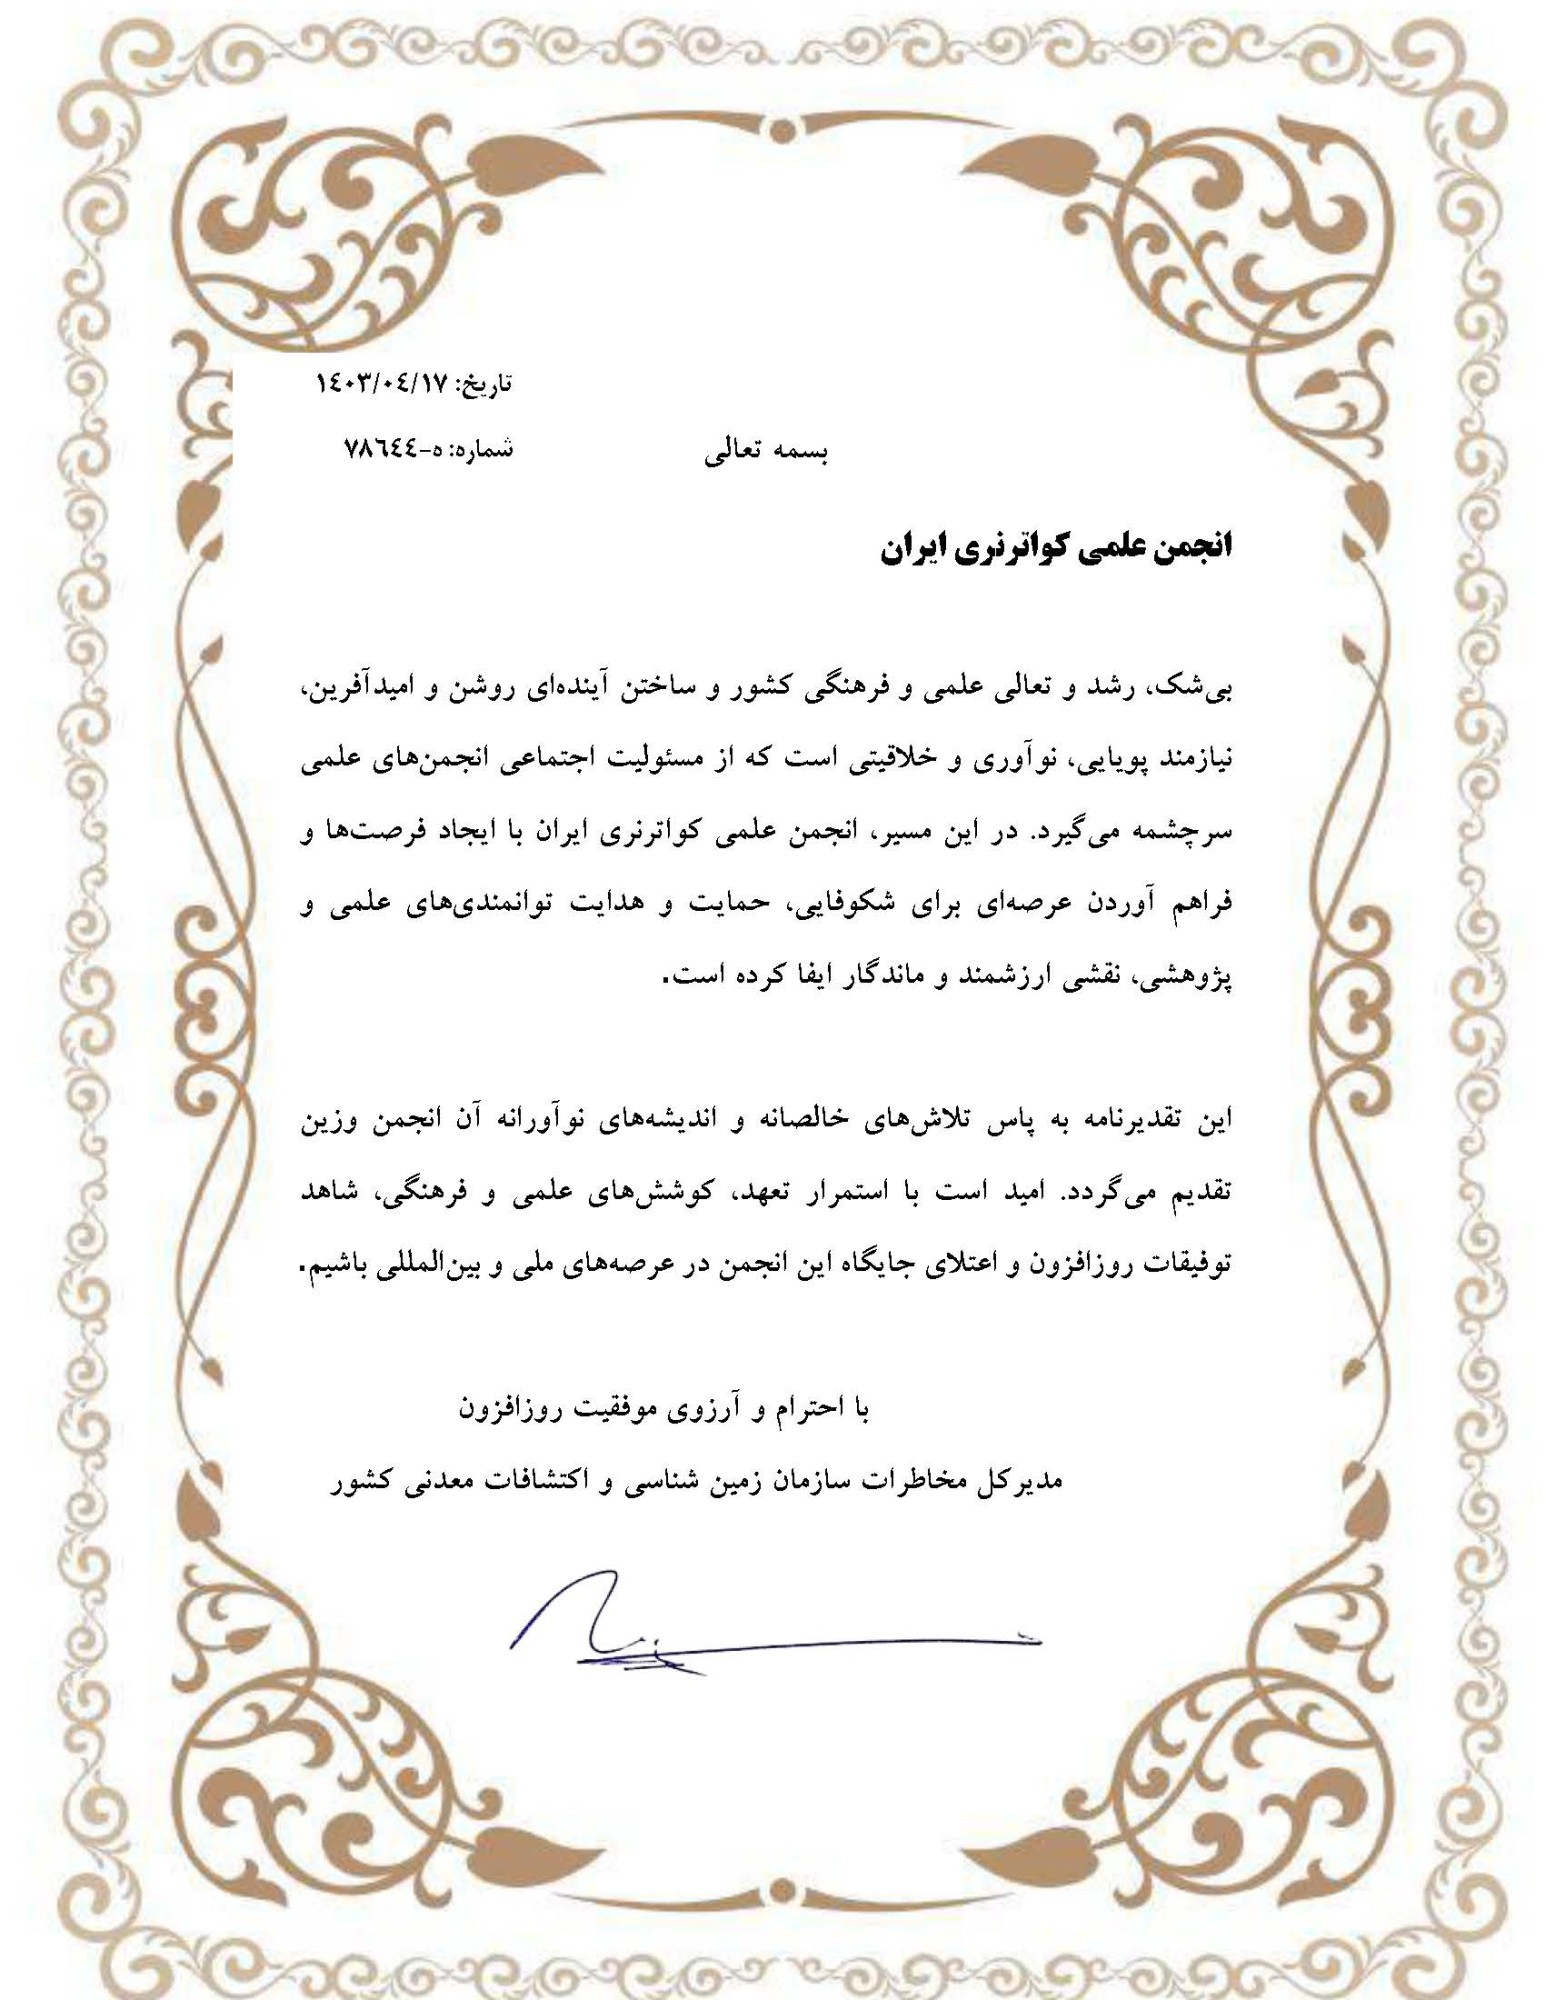 تاریخ: ١٤٠٣/٠٤/١٧
بسمه تعالی
شماره: ه-٧٨٦٤٤
انجمن علمی کواترنری ایران
بی‌شک، رشد و تعالی علمی و فرهنگی کشور و ساختن آینده‌ای روشن و امیدآفرین،
نیازمند پویایی، نوآوری و خلاقیتی است که از مسئولیت اجتماعی انجمن‌های علمی
سرچشمه می‌گیرد. در این مسیر، انجمن علمی کواترنری ایران با ایجاد فرصت‌ها و
فراهم آوردن عرصه‌ای برای شکوفایی، حمایت و هدایت توانمندی‌های علمی و
پژوهشی، نقشی ارزشمند و ماندگار ایفا کرده است.
این تقدیرنامه به پاس تلاش‌های خالصانه و اندیشه‌های نوآورانه آن انجمن وزین
تقدیم می‌گردد. امید است با استمرار تعهد، کوشش‌های علمی و فرهنگی، شاهد
توفیقات روزافزون و اعتلای جایگاه این انجمن در عرصه‌های ملی و بین‌المللی باشیم.
با احترام و آرزوی موفقیت روزافزون
مدیرکل مخاطرات سازمان زمین شناسی و اکتشافات معدنی کشور